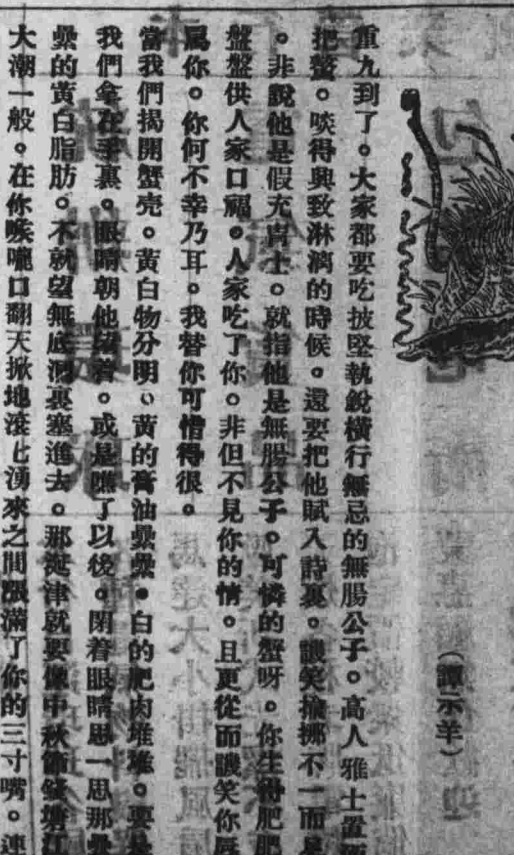 (譚示羊)
重九到了。大家都要吃披堅執銳橫行無忌的無腸公子。高人雅士置酒
把螯。啖得興致淋漓的時候。還要把他賦入詩裏。譏笑揄挪不一而足
。非說他是假充冑士。就指他是無腸公子。可憐的蟹呀。你生得肥肥
盤盤供人家口福。人家吃了你。非但不見你的情。且更從而譏笑你
罵你。你何不幸乃耳。我替你可惜得很。
當我們揭開蟹壳。黃白物分明。黃的膏油纍纍。白的肥肉堆堆。要是
我們拿在手裏。眼睛朝他望着。或是嚥了以後。閉着眼睛思一思那纍
纍的黃白脂肪。不就望無底洞裏塞進去。那涎津就要像中秋節錢塘江
大潮一般。在你喉嚨口翻天掀地滾七湧來之間漲滿了你的三寸嘴。連